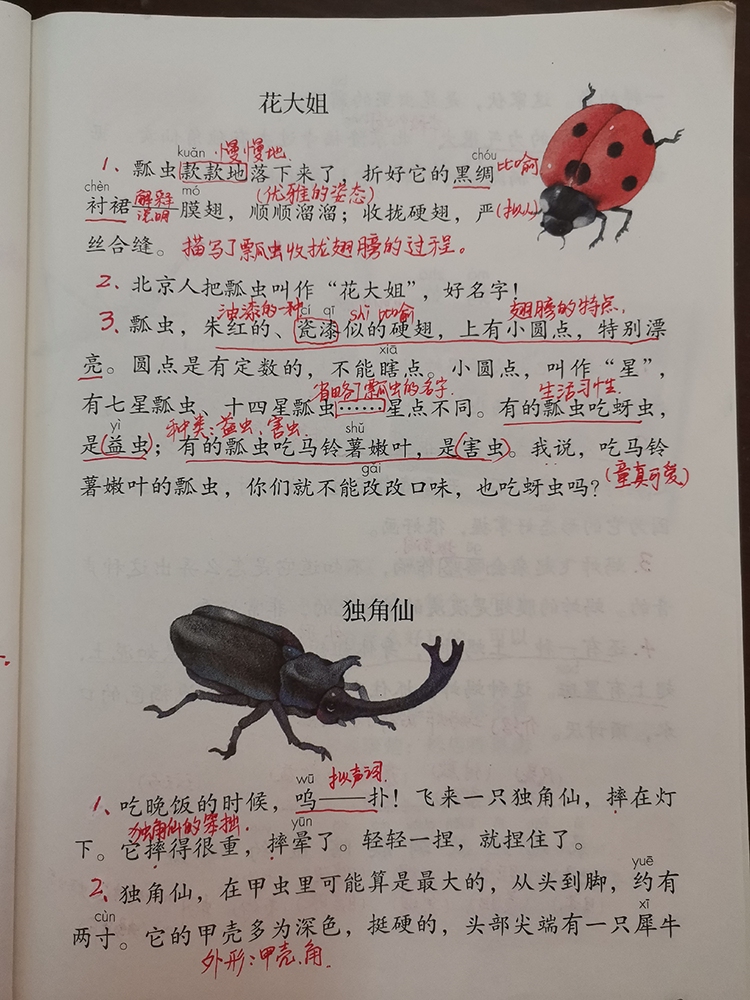 花大姐
kuǎn 慢慢地 chóu
1、瓢虫款款地落下来了，折好它的黑绸 比喻
chèn 解释说明 mó (优雅的姿态)
衬裙——膜翅，顺顺溜溜；收拢硬翅，严 (拟人)
丝合缝。描写了瓢虫收拢翅膀的过程。
2、北京人把瓢虫叫作“花大姐”，好名字！
油漆的一种 cí qī shì 比喻 翅膀的特点
3、瓢虫，朱红的、瓷漆似的硬翅，上有小圆点，特别漂
xiā
亮。圆点是有定数的，不能瞎点。小圆点，叫作“星”，
省略了瓢虫的名字 生活习性
有七星瓢虫、十四星瓢虫……星点不同。有的瓢虫吃蚜虫，
yì 种类：益虫、害虫 shǔ
是(益虫)；有的瓢虫吃马铃薯嫩叶，是(害虫)。我说，吃马铃
gǎi (童真可爱)
薯嫩叶的瓢虫，你们就不能改改口味，也吃蚜虫吗？
独角仙
wū 拟声词
1、吃晚饭的时候，呜——扑！飞来一只独角仙，摔在灯
独角仙的笨拙 yūn
下。它摔得很重，摔晕了。轻轻一捏，就捏住了。
yuē
2、独角仙，在甲虫里可能算是最大的，从头到脚，约有
cùn xī
两寸。它的甲壳多为深色，挺硬的，头部尖端有一只犀牛
外形：甲壳、角